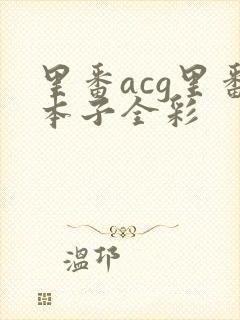 里番acg里番
本子全彩
温邛